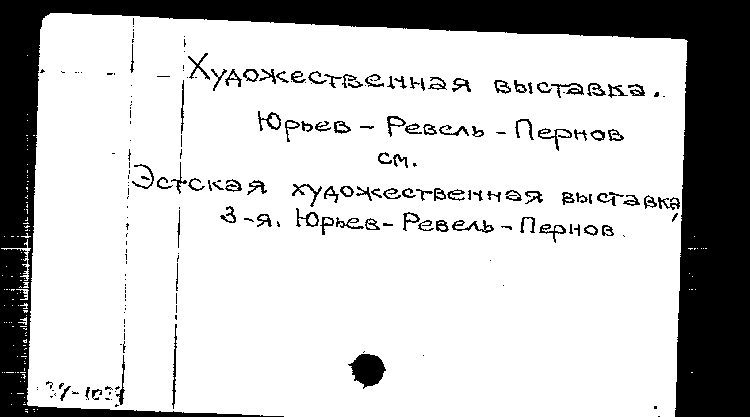 Художественная выставка.
Юрьев - Ревель - Пернов
см.
Эстская художественная выставка,
3-я. Юрьев - Ревель - Пернов.